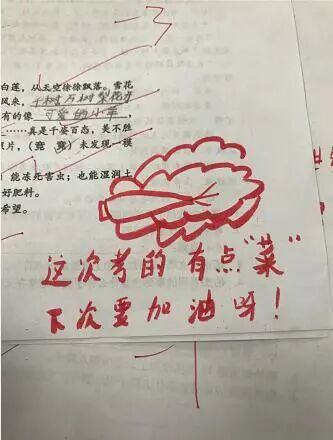 -3
白莲，从天空徐徐飘落。雪花
风来，千树万树梨花开
有的像 可爱的小羊，
……真是千姿百态，美不胜
片，（竟 竞）未发现一
能冻死害虫；也能湿润土
好肥料。
希望。
这次考的有点“菜”
下次要加油呀！